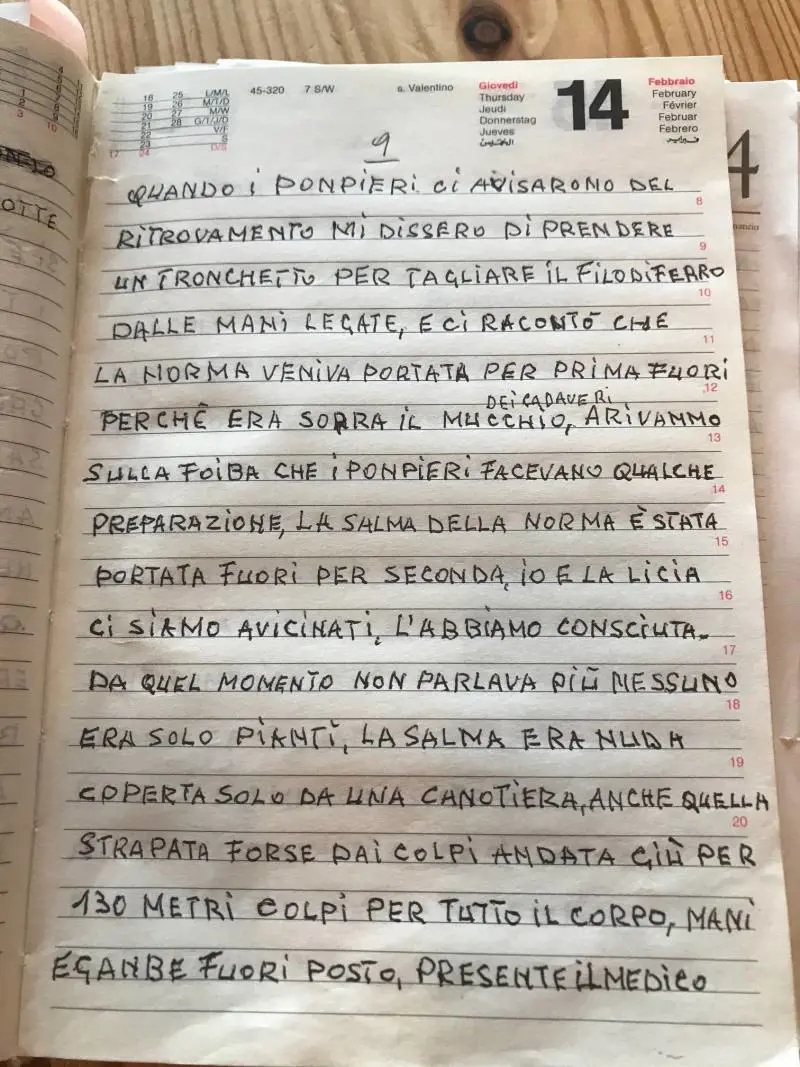 45-320 7 S/W s. Valentino
Giovedì
Thursday
Jeudi
Donnerstag
Jueves
الخميس
14
Febbraio
February
Février
Februar
Febrero
فبراير
18 25 L/M/L
19 26 M/T/D
20 27 M/W
21 28 G/T/J/D
22 V/F
23 S
17 24 D/S
9
QUANDO i PONPIERI Ci AVISARONO DEL
8
RiTROVAMENTO Mi DiSSERO Di PRENDERE
9
UN TRONCHETTO PER TAGLiARE iL FiLO DiFERRO
10
DALLE MANi LEGATE, E Ci RACONTÓ CHE
11
LA NORMA VENiVA PORTATA PER PRiMA FUORi
12
DEi CADAVERi
PERCHÊ ERA SOPRA iL MUCCHiO, ARiVAMMO
13
SULLA FOiBA CHE i PONPiERi FACEVANO QUALCHE
14
PREPARAZiONE, LA SALMA DELLA NORMA È STATA
15
PORTATA FUORi PER SECONDA, iO E LA LiCiA
16
Ci SiAMO AViCiNATi, L'ABBiAMO CONSCiUTA.
17
DA QUEL MOMENTO NON PARLAVA PiÙ NESSUNO
18
ERA SOLO PiANTi, LA SALMA ERA NUDA
19
COPERTA SOLO DA UNA CANOTiERA, ANCHE QUELLA
20
STRAPATA FORSE DAi COLPi ANDATA GiÙ PER
130 METRi COLPi PER TUTTO iL CORPO, MANi
E GANBE FUORi POSTO, PRESENTE iL MEDiCO
OTTE
4